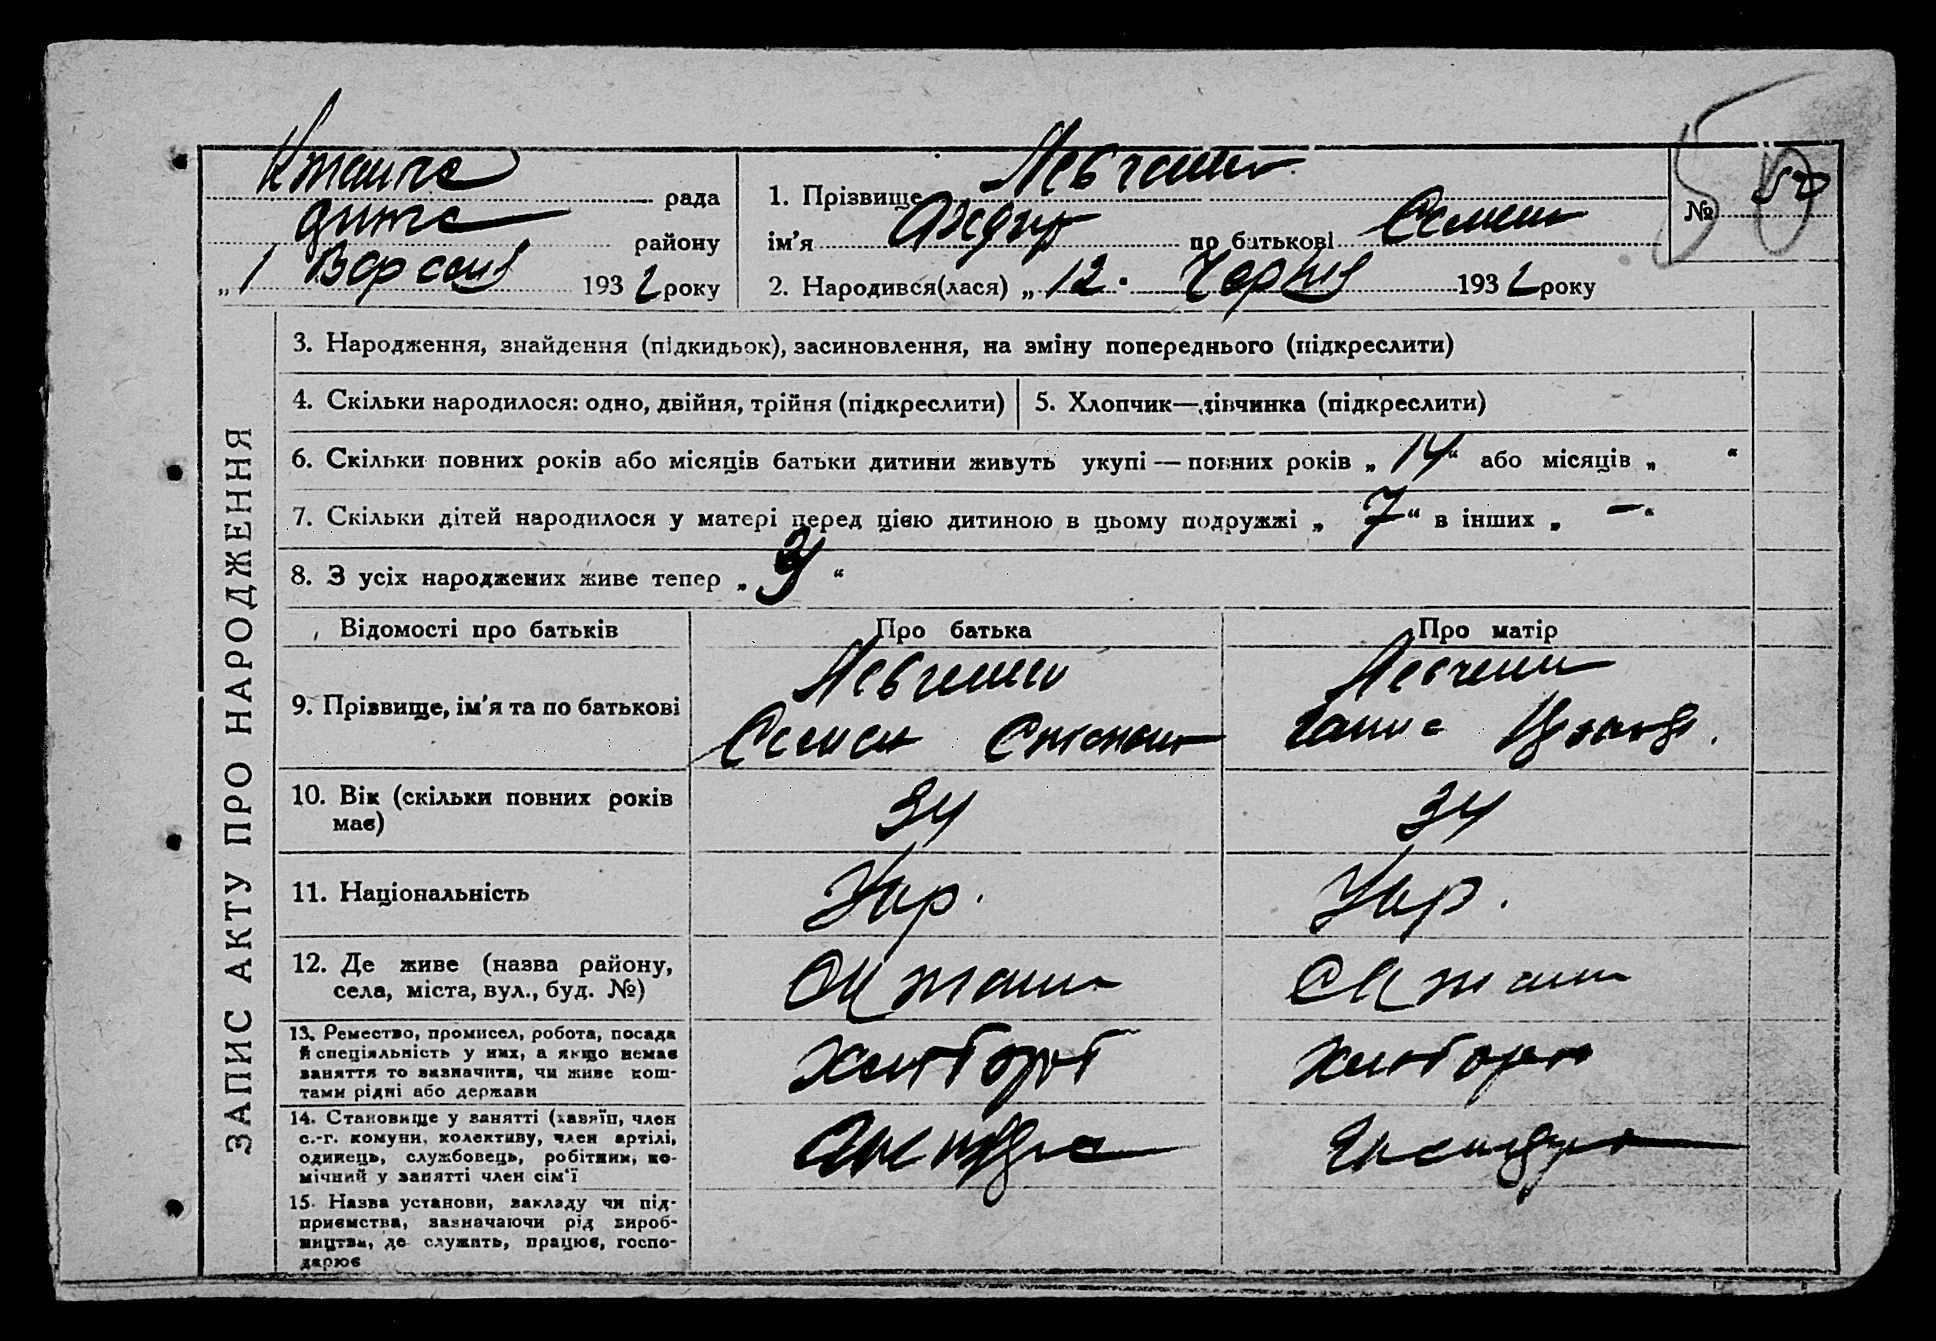 рада
району
„ 1 Вересня 1932 року
1. Прізвище
ім'я Федир по батькові Семен
№ 50
2. Народився(лася) „ 12. Червня 1932 року
ЗАПИС АКТУ ПРО НАРОДЖЕННЯ
3. Народження, знайдення (підкидьок), засиновлення, на зміну попереднього (підкреслити)
4. Скільки народилося: одно, двійня, трійня (підкреслити)
5. Хлопчик—дівчинка (підкреслити)
6. Скільки повних років або місяців батьки дитини живуть укупі — повних років „ 14 “ або місяців „ “
7. Скільки дітей народилося у матері перед цією дитиною в цьому подружжі „ 7 “ в інших „ — “
8. З усіх народжених живе тепер „ “
Відомості про батьків
Про батька
Про матір
9. Прізвище, ім'я та по батькові
Семен
Ганна
10. Вік (скільки повних років
має)
34
34
11. Національність
Укр.
Укр.
12. Де живе (назва району,
села, міста, вул., буд. №)
13. Ремество, промисел, робота, посада
й спеціяльність у них, а якщо немає
заняття то зазначити, чи живе кош-
тами рідні або держави
хлібороб
14. Становище у занятті (хазяїн, член
с.-г. комуни, колективу, член артілі,
одинець, службовець, робітник, по-
мічний у занятті член сім'ї
15. Назва установи, закладу чи під-
приємства, зазначаючи рід вироб-
ництва, де служить, працює, госпо-
дарює